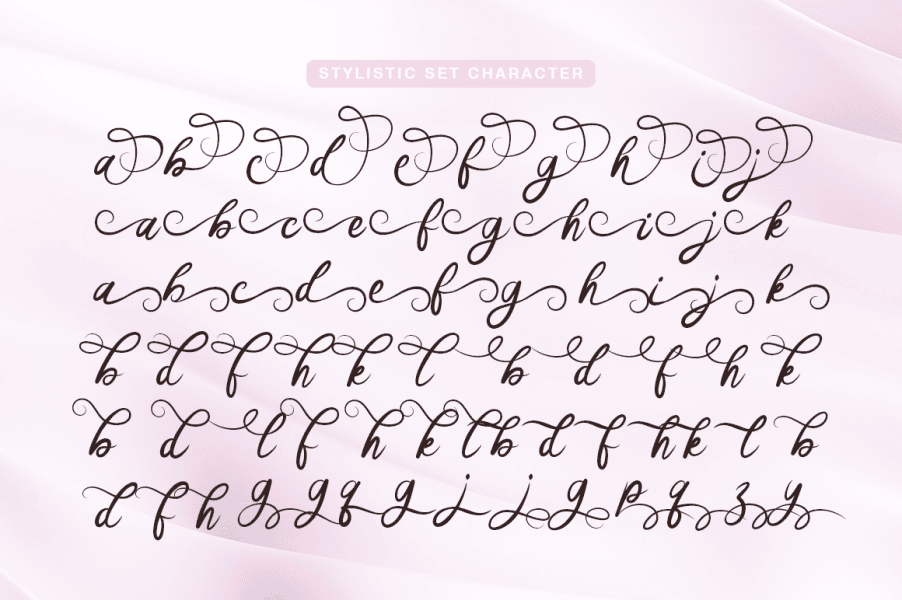 STYLISTIC SET CHARACTER
a b c d e f g h i j
a b c e f g h i j k
a b c d e f g h i j k
b d f h k l b d f h k
b d l f h k l b d f h k l b
d f h g g q g j j g p q z y